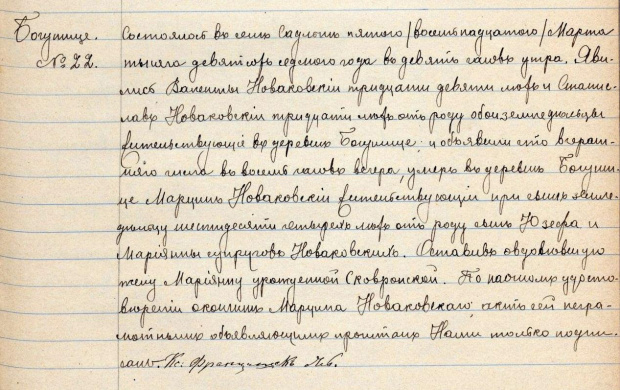 Богушице.
№ 22.
Состоялось въ селѣ Садлотъ пятаго /восемнадцатаго/ Марта
тысяча девятсотъ седмого года въ девять часовъ утра. Яви-
лись Валенты Новаковскій тридцати девяти лѣтъ и Станис-
лавъ Новаковскій тридцати лѣтъ отъ роду оба земледѣльцы
жительствующіе въ деревнѣ Богушице и объявили что вчераш-
няго числа въ восемь часовъ вечера, умеръ въ деревнѣ Богуши-
це Марцинъ Новаковскій жительствующій при сынѣ земле-
дѣльцу шестидесяти четырехъ лѣтъ отъ роду сынъ Юзефа и
Маріянны супруговъ Новаковскихъ. Оставивъ овдовѣвшую
жену Маріянну урожденной Сковронской. По насомъ удосто-
вѣреніи о кончинѣ Марцина Новаковскаго, актъ сей негра-
мотнымъ объявляющимъ прочитанъ Нами только подпи-
санъ. Кс. Францишекъ